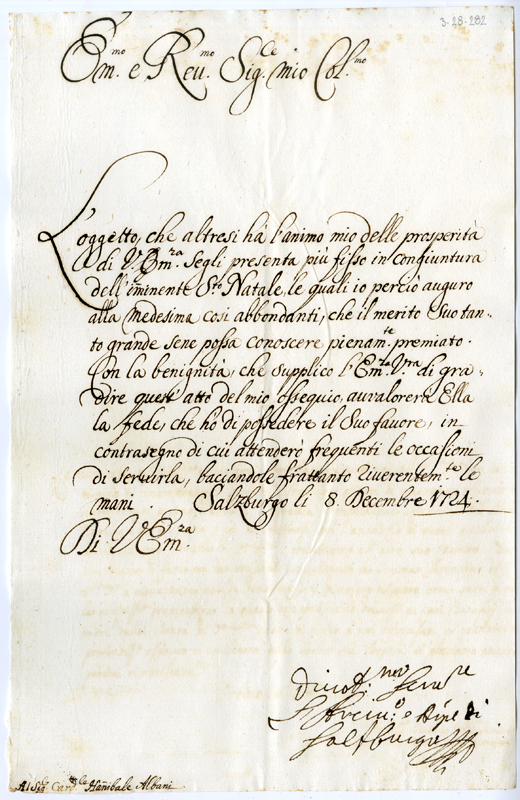 3-28-282
Em.mo e Reu.mo Sig.re mio Col.mo
L'oggetto, che altresi há l'animo mio delle prosperità
di V.Em.za segli presenta più fisso in congiuntura
dell'imminente S.to Natale, le quali io perciò auguro
alla medesima così abbondanti, che il merito Suo tan-
to grande sene possa conoscere pienam.te premiato.
Con la benignità, che supplico l'Em.za V.ra di gra-
dire quest'atto del mio ossequio, auvalorerà Ella
la fede, che ho di possedere il Suo fauore, in
contrasegno di cui attenderò frequenti le occasioni
di seruirla, baciandole frattanto riuerentem.te le
mani. Salzburgo li 8. Decembre 1724.
Di V.Em.za
Seru.re
di
Salzburgo
Al Sig.r Card.le Hañibale Albani